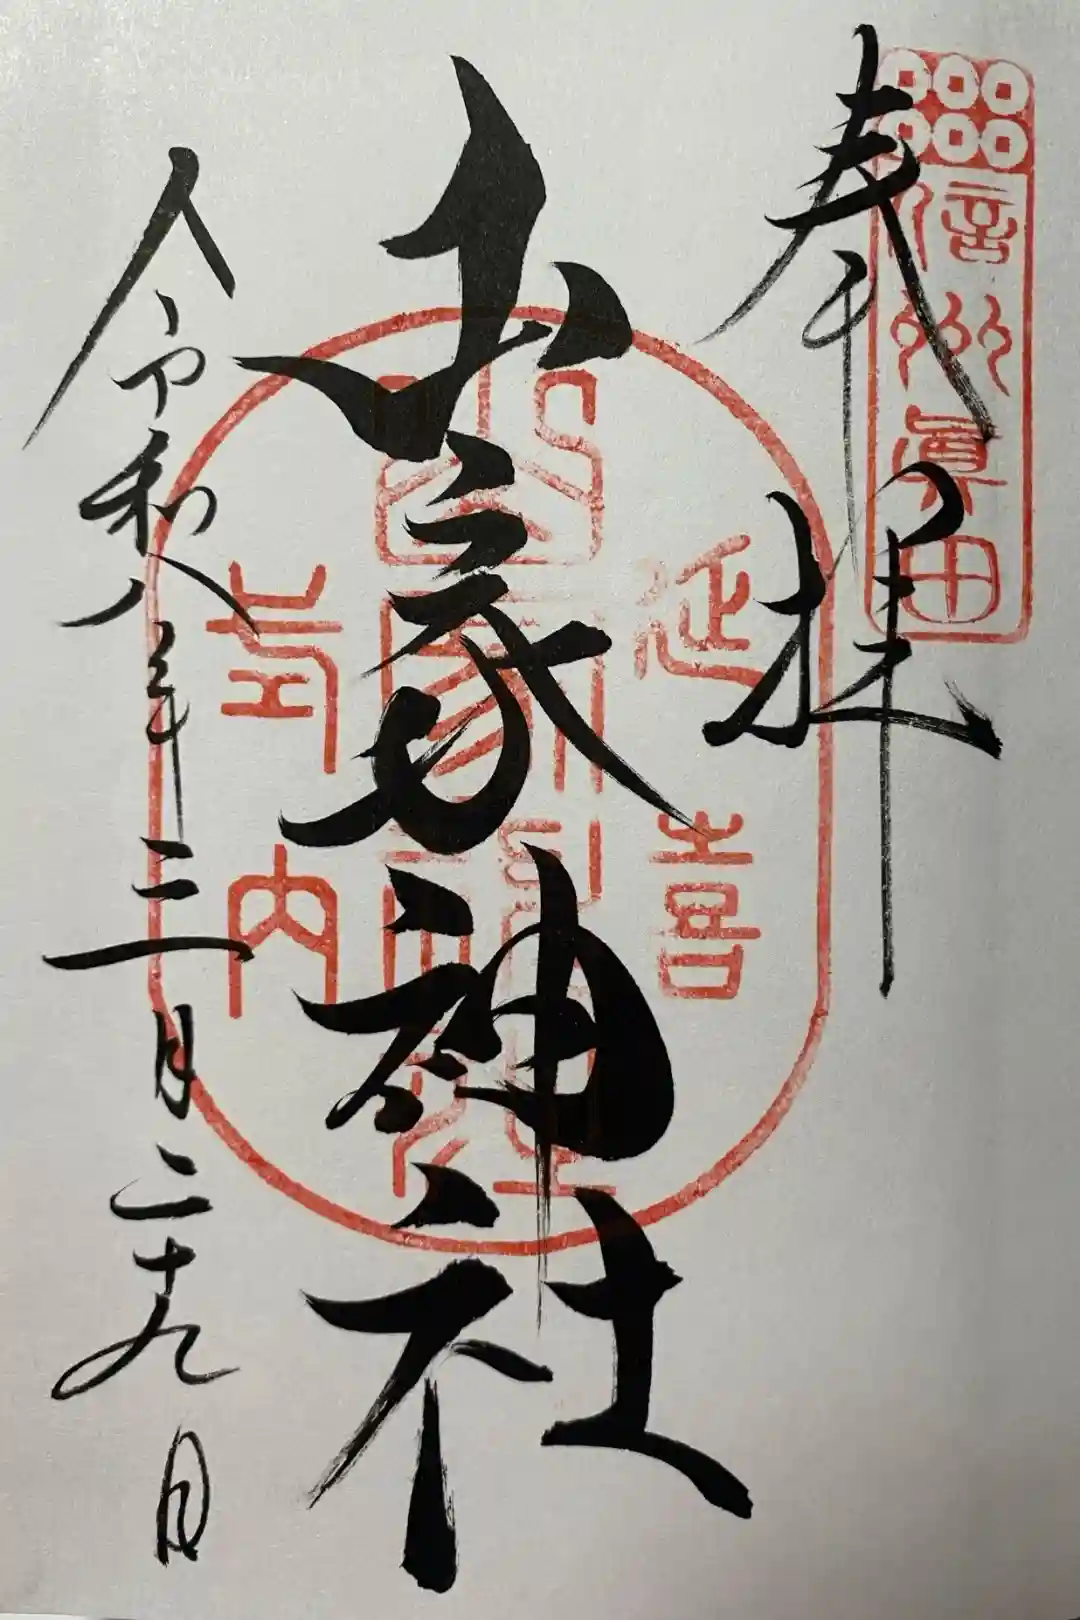 奉拝
信州眞田
山家神社
延喜
山家神社
式内
令和八年三月二十九日